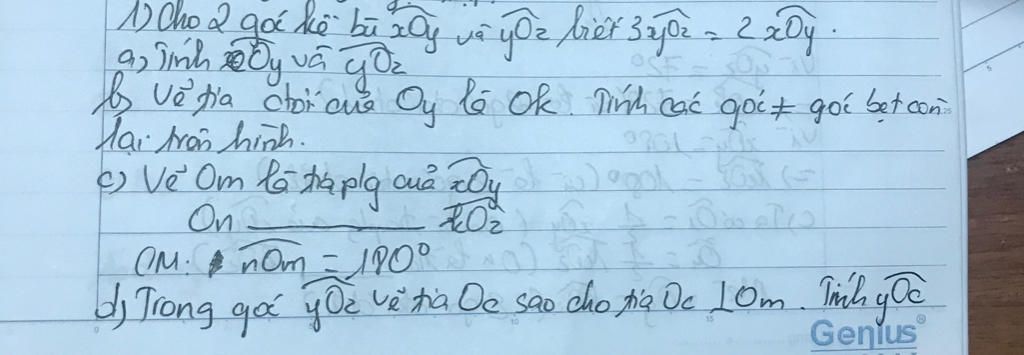 1) Cho 2 góc kề bù xOy và yOz biết 3yOz = 2xOy.
a) Tính xOy và yOz
b) Vẽ tia đối của Oy là Ok. Tính các góc ≠ góc bẹt còn
lại trên hình.
c) Vẽ Om là tia plg của xOy
On ________ kOz
CM: nOm = 180°
d) Trong góc yOz vẽ tia Oc sao cho tia Oc ⊥ Om. Tính yOc
Genius®